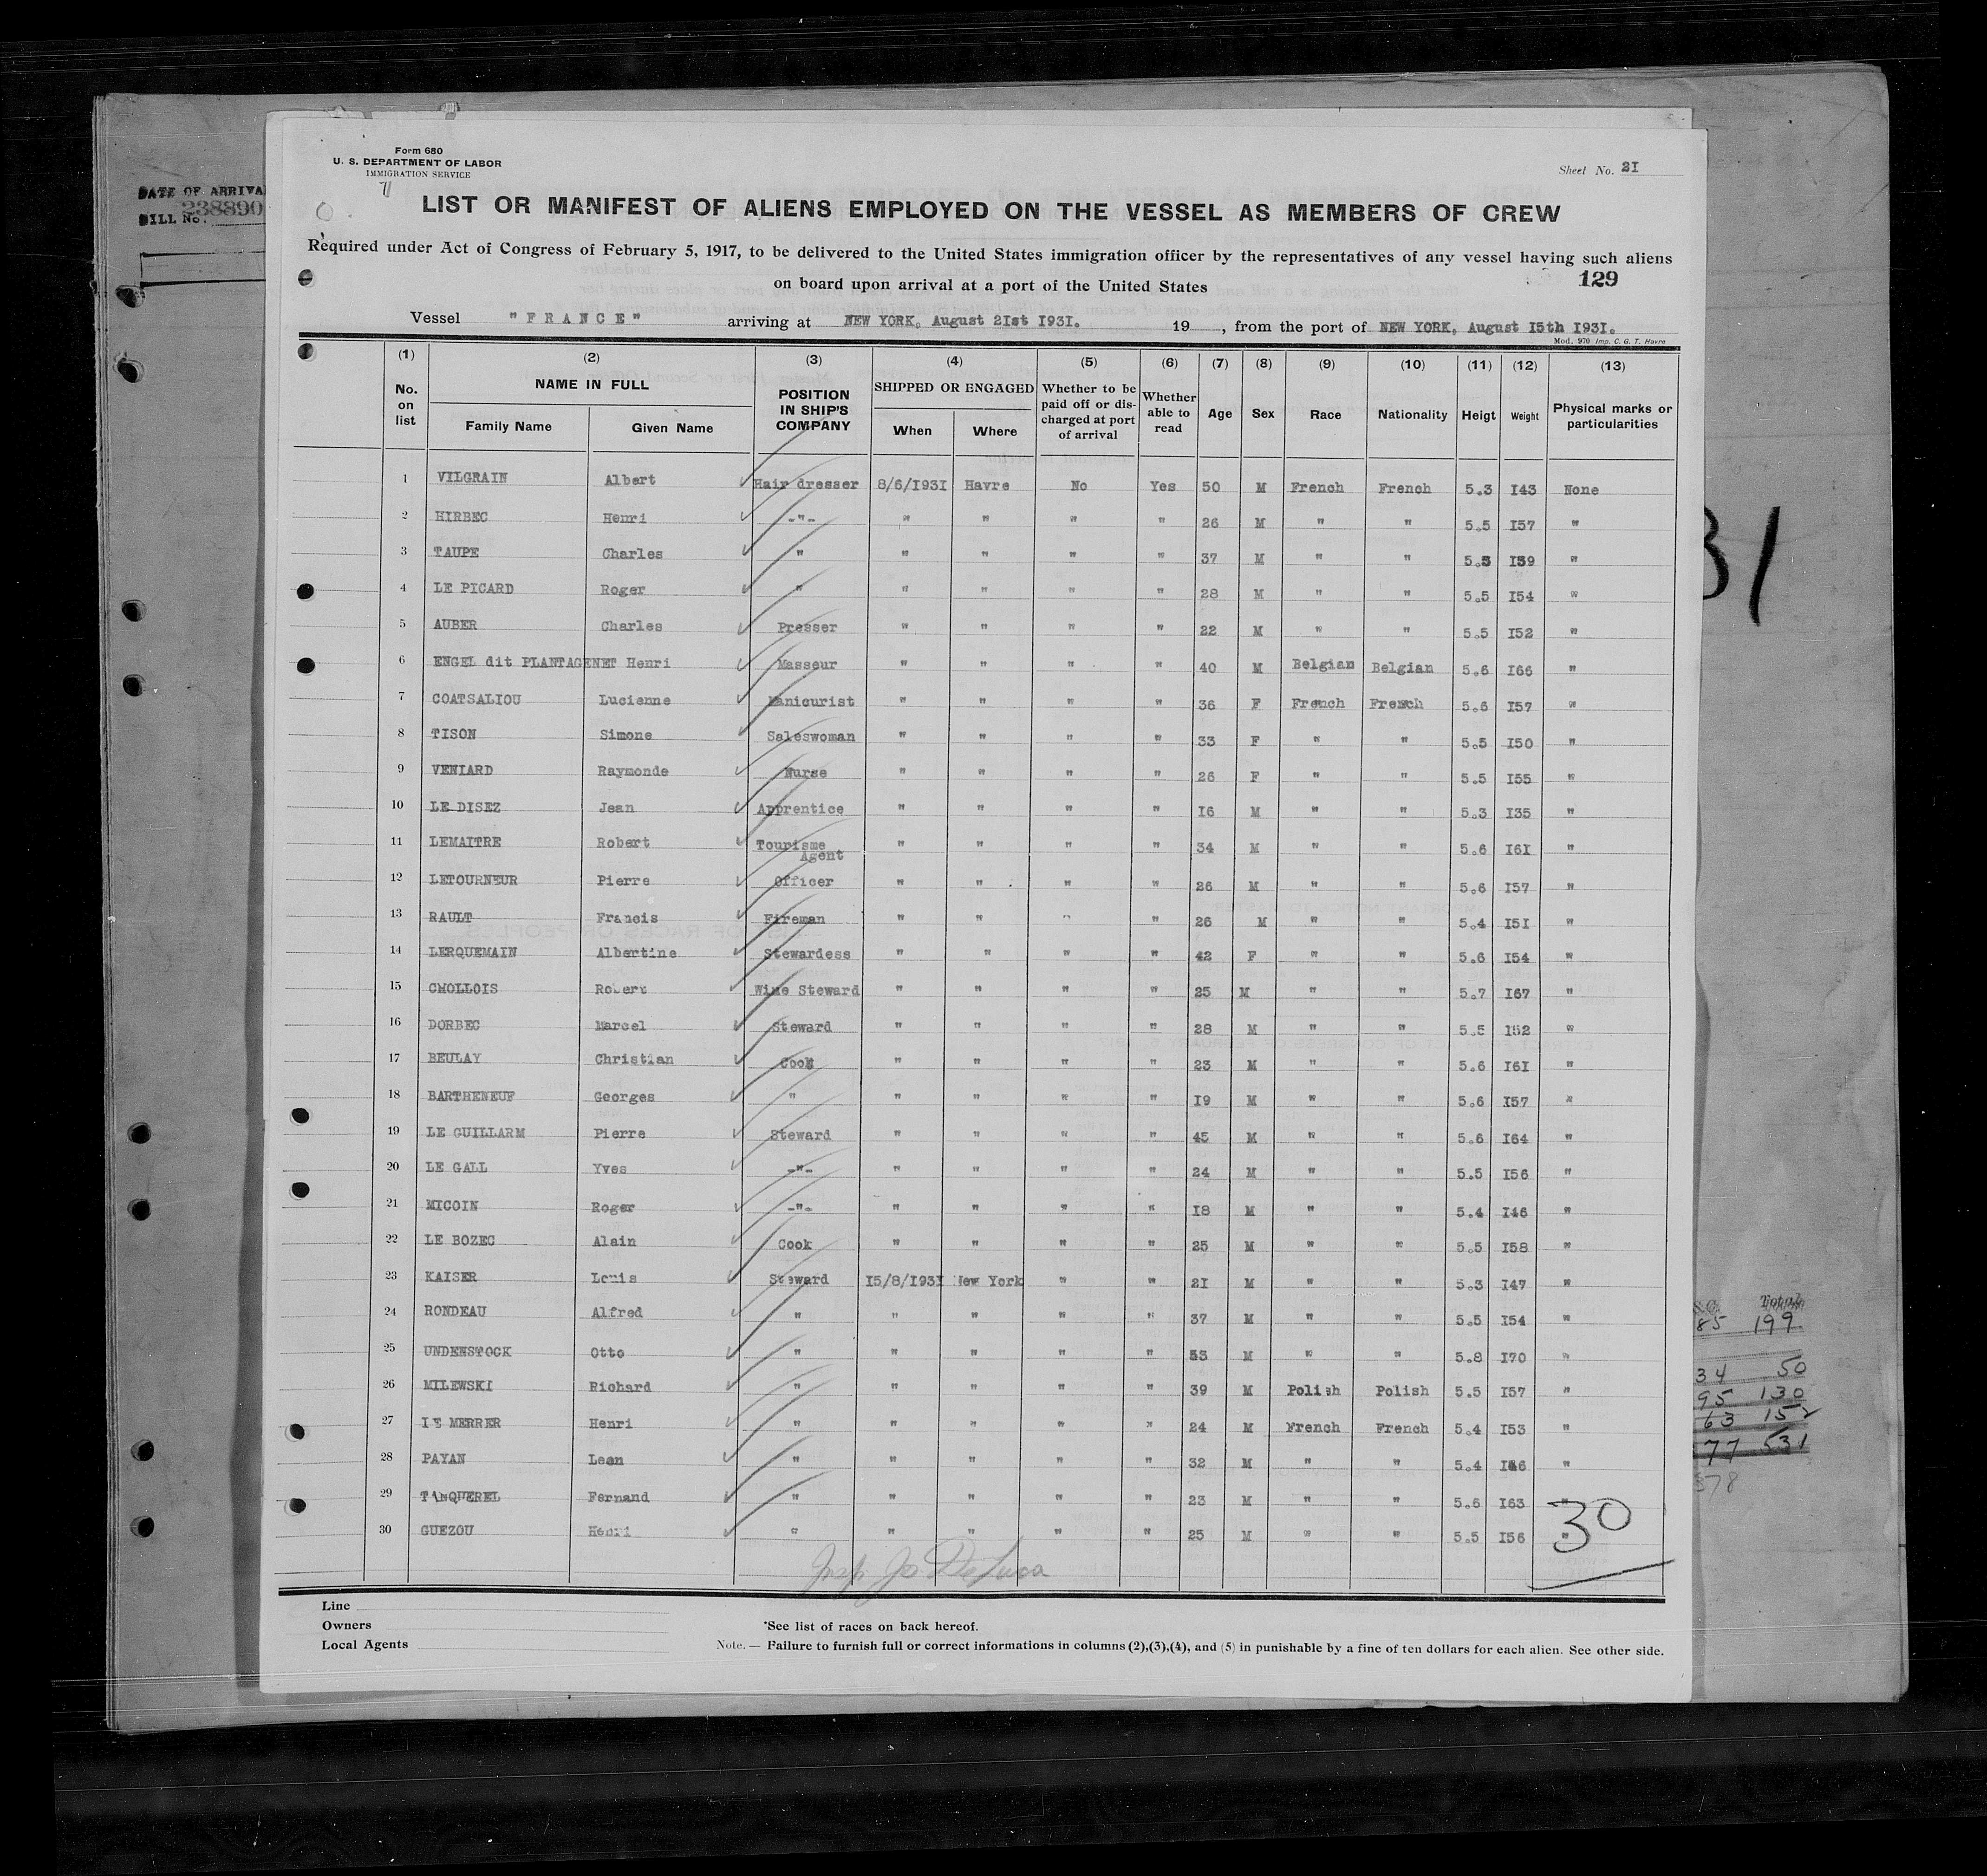 Form 680
U. S. DEPARTMENT OF LABOR
IMMIGRATION SERVICE
Sheet No. 2I
DATE OF ARRIVA
BILL No. 238890
LIST OR MANIFEST OF ALIENS EMPLOYED ON THE VESSEL AS MEMBERS OF CREW
Required under Act of Congress of February 5, 1917, to be delivered to the United States immigration officer by the representatives of any vessel having such aliens
on board upon arrival at a port of the United States
129
Vessel "FRANCE" arriving at NEW YORK, August 2Ist I93I. 19 , from the port of NEW YORK, August I5th I93I.
Mod. 970 Imp. C. G. T. Havre
(1) (2) (3) (4) (5) (6) (7) (8) (9) (10) (11) (12) (13)
No. on list NAME IN FULL Family Name Given Name POSITION IN SHIP'S COMPANY SHIPPED OR ENGAGED When Where Whether to be paid off or discharged at port of arrival Whether able to read Age Sex Race Nationality Heigt Weight Physical marks or particularities
1 VILGRAIN Albert Hair dresser 8/6/I93I Havre No Yes 50 M French French 5.3 I43 None
2 HIRBEC Henri -"- " " " " 26 M " " 5.5 I57 "
3 TAUPE Charles " " " " " 37 M " " 5.5 I59 "
4 LE PICARD Roger " " " " " 28 M " " 5.5 I54 "
5 AUBER Charles Presser " " " " 22 M " " 5.5 I52 "
6 ENGEL dit PLANTAGENET Henri Masseur " " " " 40 M Belgian Belgian 5.6 I66 "
7 COATSALIOU Lucienne Manicurist " " " " 36 F French French 5.6 I57 "
8 TISON Simone Saleswoman " " " " 33 F " " 5.5 I50 "
9 VENIARD Raymonde Nurse " " " " 26 F " " 5.5 I55 "
10 LE DISEZ Jean Apprentice " " " " I6 M " " 5.3 I35 "
11 LEMAITRE Robert Tourisme Agent " " " " 34 M " " 5.6 I6I "
12 LETOURNEUR Pierre Officer " " " " 26 M " " 5.6 I57 "
13 RAULT Francis Fireman " " " " 26 M " " 5.4 I5I "
14 LERQUEMAIN Albertine Stewardess " " " " 42 F " " 5.6 I54 "
15 CHOLLOIS Robert Wine Steward " " " " 25 M " " 5.7 I67 "
16 DORBEC Marcel Steward " " " " 28 M " " 5.5 I52 "
17 BEULAY Christian Cook " " " " 23 M " " 5.6 I6I "
18 BARTHENEUF Georges " " " " " I9 M " " 5.6 I57 "
19 LE GUILLARM Pierre Steward " " " " 45 M " " 5.6 I64 "
20 LE GALL Yves -"- " " " " 24 M " " 5.5 I56 "
21 MICOIN Roger -"- " " " " I8 M " " 5.4 I46 "
22 LE BOZEC Alain Cook " " " " 25 M " " 5.5 I58 "
23 KAISER Louis Steward I5/8/I93I New York " " 2I M " " 5.3 I47 "
24 RONDEAU Alfred " " " " " 37 M " " 5.5 I54 "
25 UNDENSTOCK Otto " " " " " 53 M " " 5.8 I70 "
26 MILEWSKI Richard " " " " " 39 M Polish Polish 5.5 I57 "
27 LE MERRER Henri " " " " " 24 M French French 5.4 I53 "
28 PAYAN Lean " " " " " 32 M " " 5.4 I46 "
29 TANQUEREL Fernand " " " " " 23 M " " 5.6 I63 "
30 GUEZOU Henri " " " " " 25 M " " 5.5 I56 "
30
Line
Owners
Local Agents
*See list of races on back hereof.
Note. — Failure to furnish full or correct informations in columns (2),(3),(4), and (5) in punishable by a fine of ten dollars for each alien. See other side.
31
Total
85 199
34 50
95 130
63 152
77 531
378